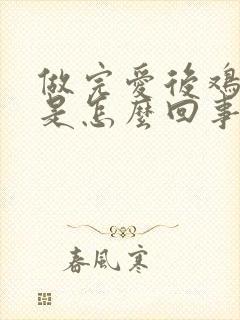 做完愛後鸡
是怎麼回事
春風寒